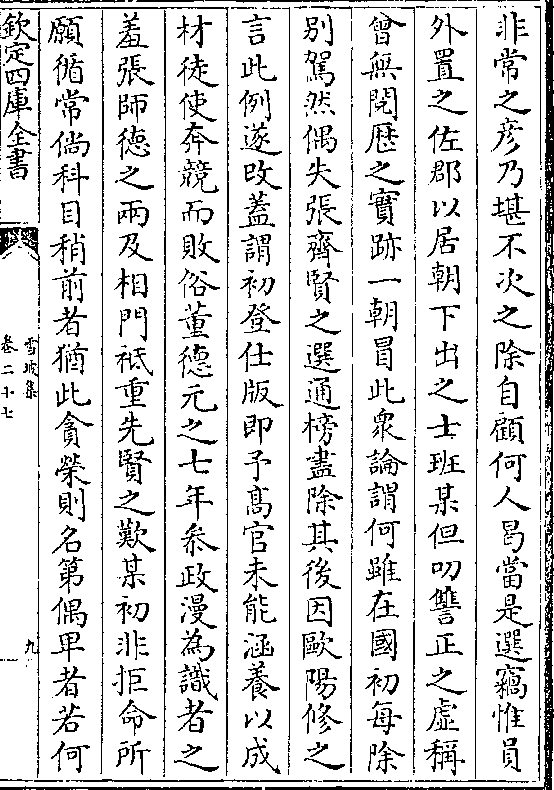 非常之彦乃堪不次之除自顧何人曷當是選竊惟員
外置之佐郡以居朝下出之士班某但叨讐正之虚稱
曾無閱歴之實跡一朝冒此衆論謂何雖在國初每除
别駕然偶失張齊賢之選通榜盡除其後因歐陽修之
言此例遂改蓋謂初登仕版即予髙官未能涵養以成
材徒使奔競而敗俗董德元之七年叅政漫為識者之
羞張師德之兩及相門祗重先賢之歎某初非拒命所
願循常倘科目稍前者猶此貪榮則名第偶卑者若何
欽定四庫全書
雪坡集
卷二十七
九